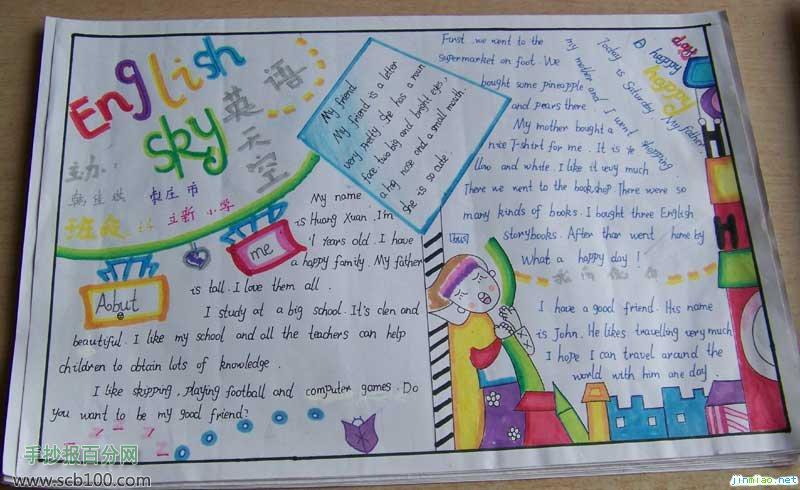 English
sky
英语
天空
主办:
枣庄市
立新小学
班级
Aobut
me
My friend
My friend is a letter
very pretty. She has a roun
face two big and bright eyes,
a big nose and a small mouth.
She is so cute.
My name
is Huang Xuan. I'm
11 Years old. I have
a happy family. My father
is tall. I love them all.
I study at a big school. It's clen and
beautiful. I like my school and all the teachers can help
children to obtain lots of knowledge.
I like skipping, playing football and computer games. Do
you want to be my good friend?
A happy
day
happy
Today is Saturday. My father
my mother and I went shopping.
First we went to the
supermarket on foot. We
bought some pineapple
and pears there
My mother bought a
nice T-shirt for me. It is ye
llow and white. I like it very much.
There we went to the bookshop. There were so
many kinds of books. I bought three English
storybooks. After that went home by
What a happy day!
I have a good friend. His name
is John. He likes travelling very much
I hope I can travel around the
world with him one day.
手抄报百分网
www.scb100.com
jinmiao.net